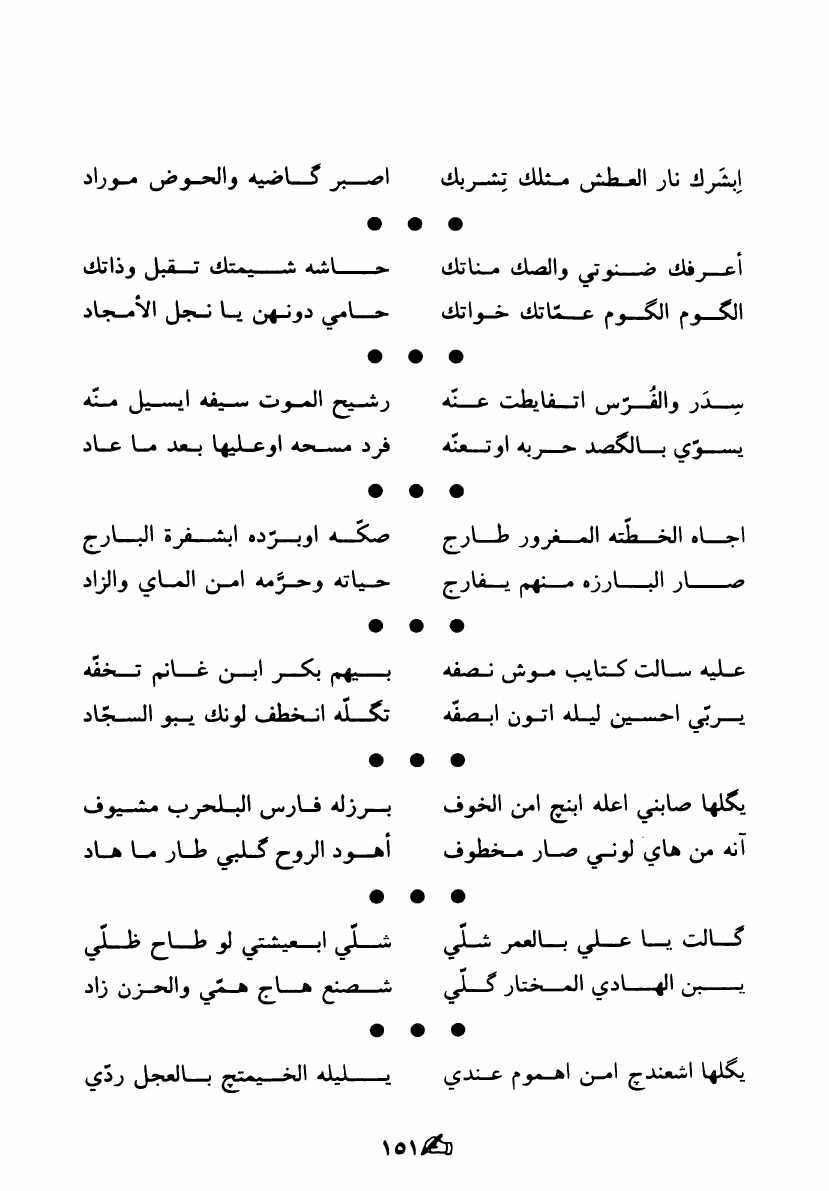 اِبشَرك نار العطش مثلك تِشربك اصبر گاضيه والحوض موراد
● ● ●
أعرفك ضنوتي والصك مناتك حاشه شيمتك تقبل وذاتك
الگوم الگوم عمّاتك خواتك حامي دونهن يا نجل الأمجاد
● ● ●
سِدَر والفُرّس اتفايطت عنّه رشيح الموت سيفه ايسيل منّه
يسوّي بالگصد حربه اوتعنّه فرد مسحه اوعليها بعد ما عاد
● ● ●
اجاه الخطّته المغرور طارج صكّه اوبرّده ابشفرة البارج
صار البارزه منهم يفارج حياته وحرَّمه امن الماي والزاد
● ● ●
عليه سالت كتايب موش نصفه بيهم بكر ابن غانم تخفّه
يربّي احسين ليله اتون ابصفّه تگلّه انخطف لونك يبو السجّاد
● ● ●
يگلها صابني اعله ابنچ امن الخوف برزله فارس البلحرب مشيوف
آنه من هاي لوني صار مخطوف أهود الروح گلبي طار ما هاد
● ● ●
گالت يا علي بالعمر شلّي شلّي ابعيشتي لو طاح ظلّي
يبن الهادي المختار گلّي شصنع هاج همّي والحزن زاد
● ● ●
يگلها اشعندچ امن اهموم عندي يليله الخيمتچ بالعجل ردّي
١٥١